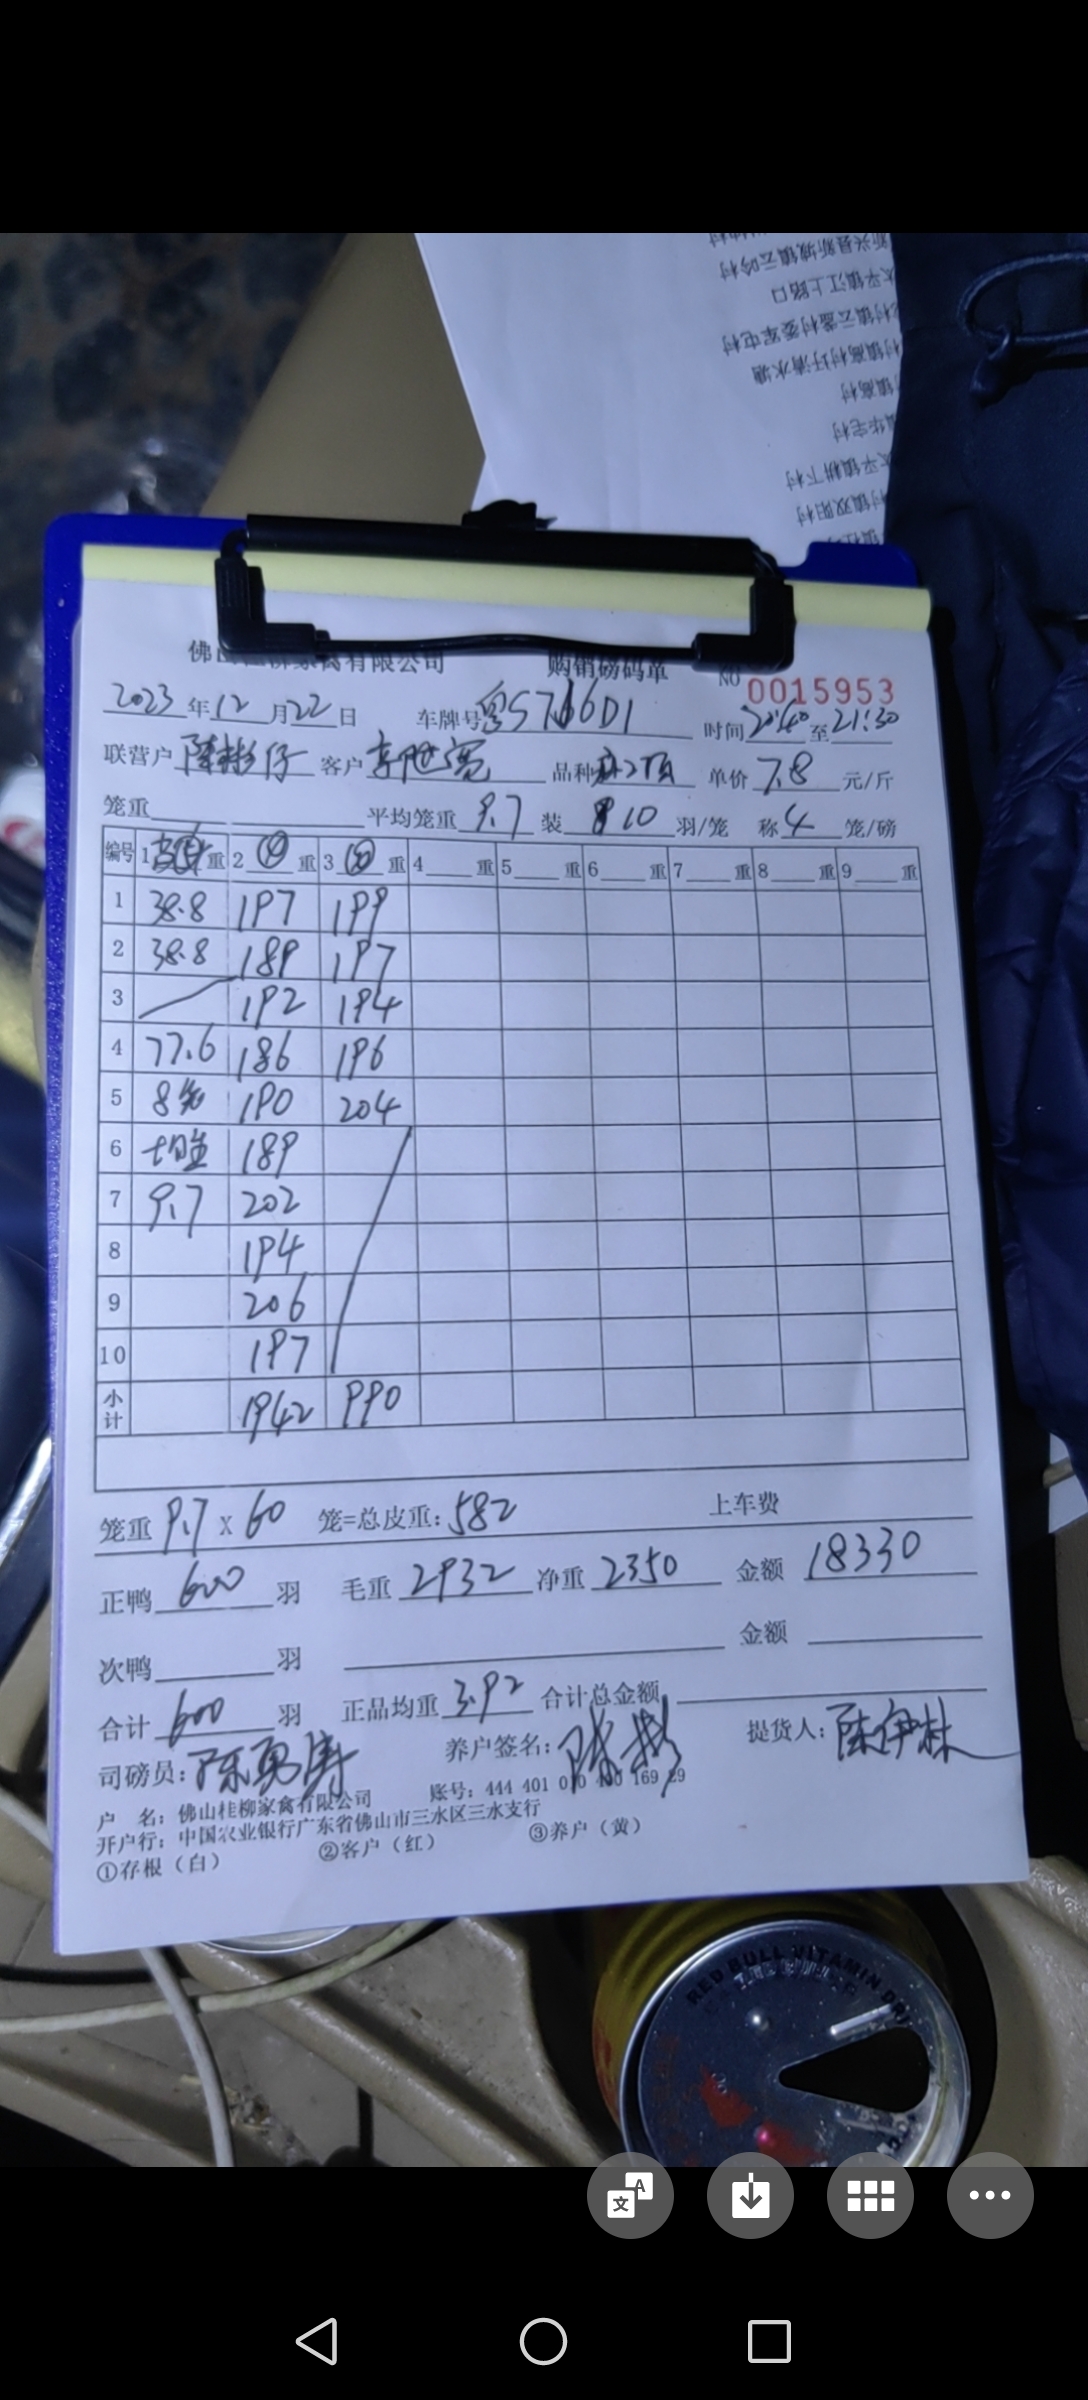 新兴县新城镇云吟村
太平镇江上路口
村镇高村圩清水塘
镇高村
太平镇耕下村
村镇双阳村
家禽有限公司 购销磅码单 NO 0015953
2023年12月22日 车牌号粤S766D1 时间20:40至21:30
联营户 陈彬仔 客户 品种 单价 7.8 元/斤
笼重 平均笼重 9.7 装 10 羽/笼 称 4 笼/磅
编号 1 重 2 重 3 重 4 重 5 重 6 重 7 重 8 重 9 重
1 38.8 197 199
2 38.8 189 197
3 192 194
4 77.6 186 196
5 8笼 190 204
6 189
7 9.7 202
8 194
9 206
10 197
小计 1942 990
笼重 9.7 x 60 笼=总皮重: 582 上车费
正鸭 600 羽 毛重 2932 净重 2350 金额 18330
次鸭 羽 金额
合计 600 羽 正品均重 3.92 合计总金额
司磅员: 陈勇涛 养户签名: 陈彬 提货人: 陈伊林
户 名: 佛山桂柳家禽有限公司 账号: 444 401 010 169 29
开户行: 中国农业银行广东省佛山市三水区三水支行
①存根(白) ②客户(红) ③养户(黄)
RED BULL VITAMIN DR